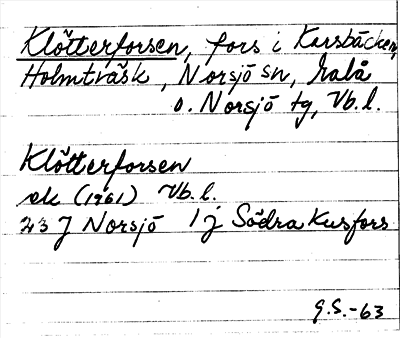 Klötterforsen, fors i Karsbäcken,
Holmträsk, Norsjö sn, Malå
o. Norsjö tg, Vb. l.
Klötterforsen
ek (1961) Vb. l.
23 J Norsjö 1 j Södra Kusfors
G.S. -63